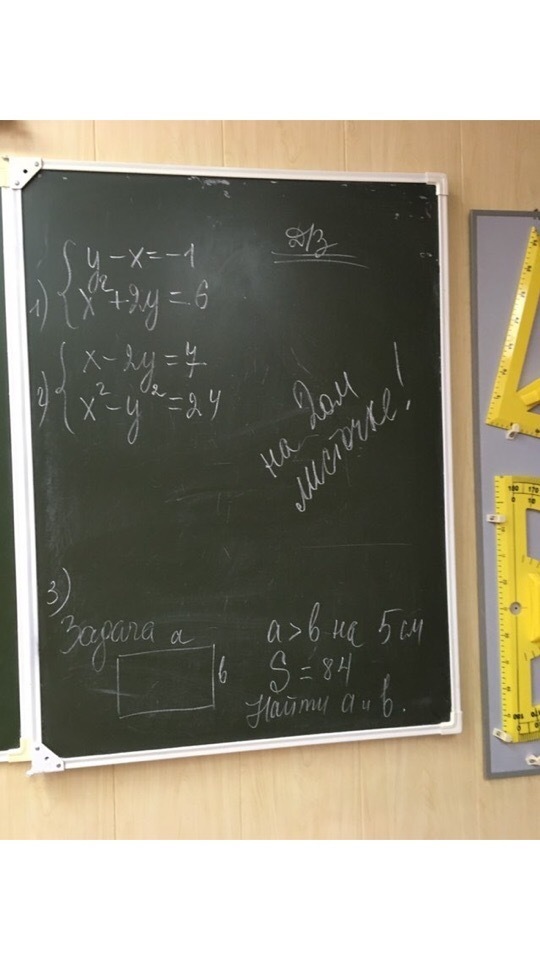 ДЗ
1) { y - x = -1
x² + 2y = 6
2) { x - 2y = 7
x² - y² = 24
на дом
листочке!
3)
Задача
a
b
a > b на 5 см
S = 84
Найти a и b.
180 170
0 10